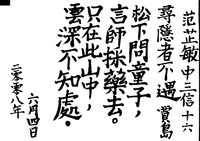 范芷敏中三信十六
尋隱者不遇 賈島
松下問童子，
言師採藥去。
只在此山中，
雲深不知處．
六月四日
二零零八年